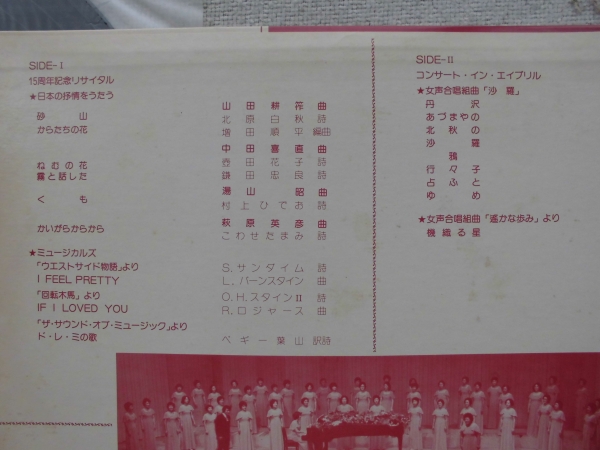 SIDE-I
15周年記念リサイタル
★日本の抒情をうたう
山田耕筰 曲
砂山 北原白秋 詩
からたちの花 増田順平 編曲
中田喜直 曲
ねむの花 壺田花子 詩
霧と話した 鎌田忠良 詩
湯山昭 曲
くも 村上ひでお 詩
萩原英彦 曲
かいがらからから こわせたまみ 詩
★ミュージカルズ
「ウエストサイド物語」より S.サンダイム 詩
I FEEL PRETTY L.バーンスタイン 曲
「回転木馬」より O.H.スタインII 詩
IF I LOVED YOU R.ロジャース 曲
「ザ・サウンド・オブ・ミュージック」より
ド・レ・ミの歌 ペギー葉山 訳詩
SIDE-II
コンサート・イン・エイプリル
★女声合唱組曲「沙羅」
丹沢
あづまやの
北秋の
沙羅
鴉
行々子
占ふと
ゆめ
★女声合唱組曲「遙かな歩み」より
機織る星